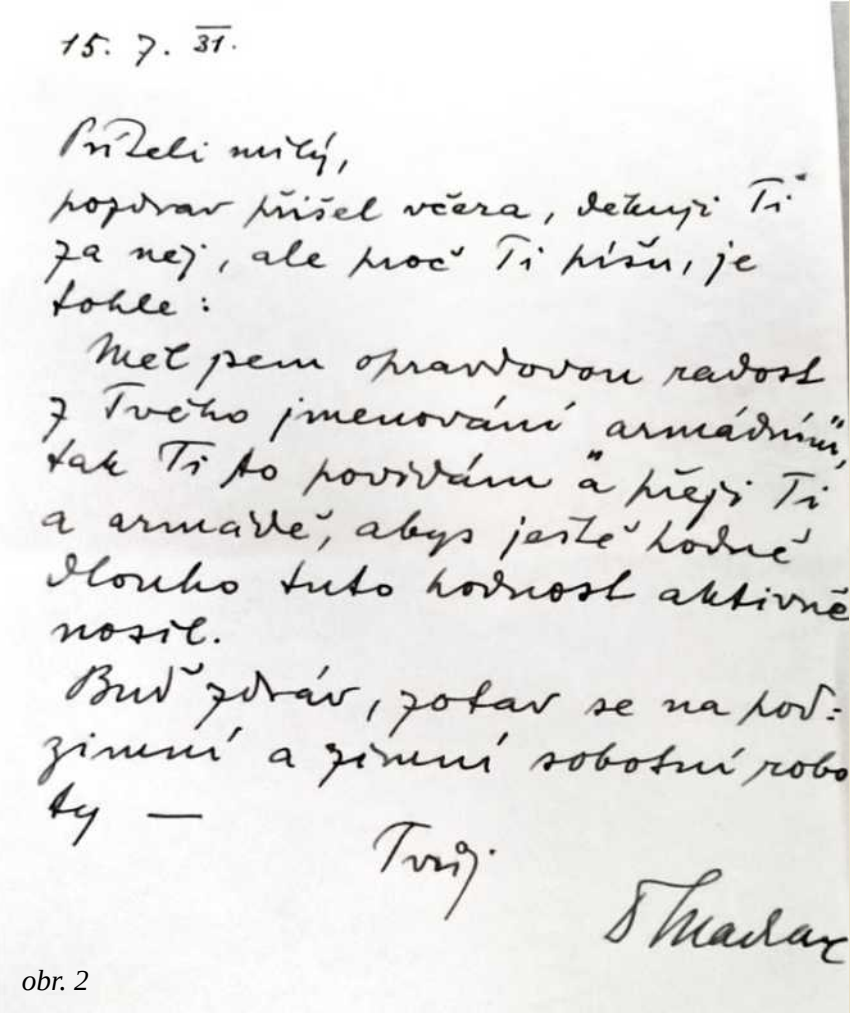 15. 7. 31.
Příteli milý,
pozdrav přišel včera, děkuji Ti
za něj, ale proč Ti píšu, je
tohle:
Měl jsem opravdovou radost
z Tvého jmenování „armádním“,
tak Ti to povídám a přeji Ti
a armádě, abys ještě hodně
dlouho tuto hodnost aktivně
nosil.
Buď zdráv, zotav se na pod-
zimní a zimní sobotní robo
ty —
Tvůj
obr. 2